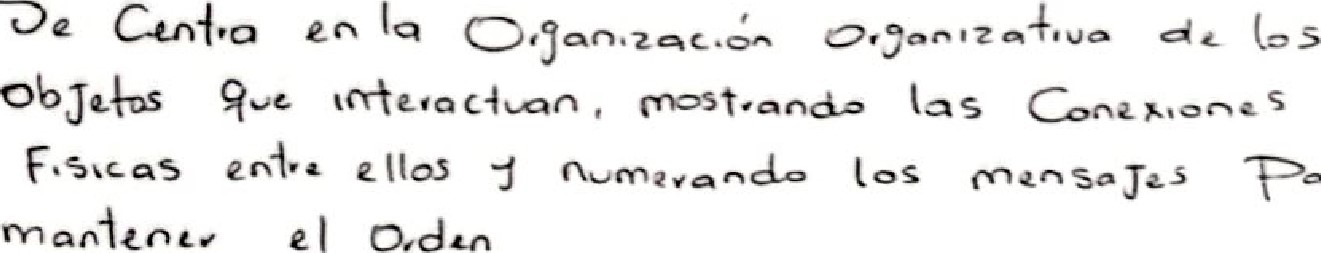 Se Centra en la Organización organizativa de los
objetos que interactuan, mostrando las Conexiones
Fisicas entre ellos y numerando los mensajes Pa
mantener el Orden